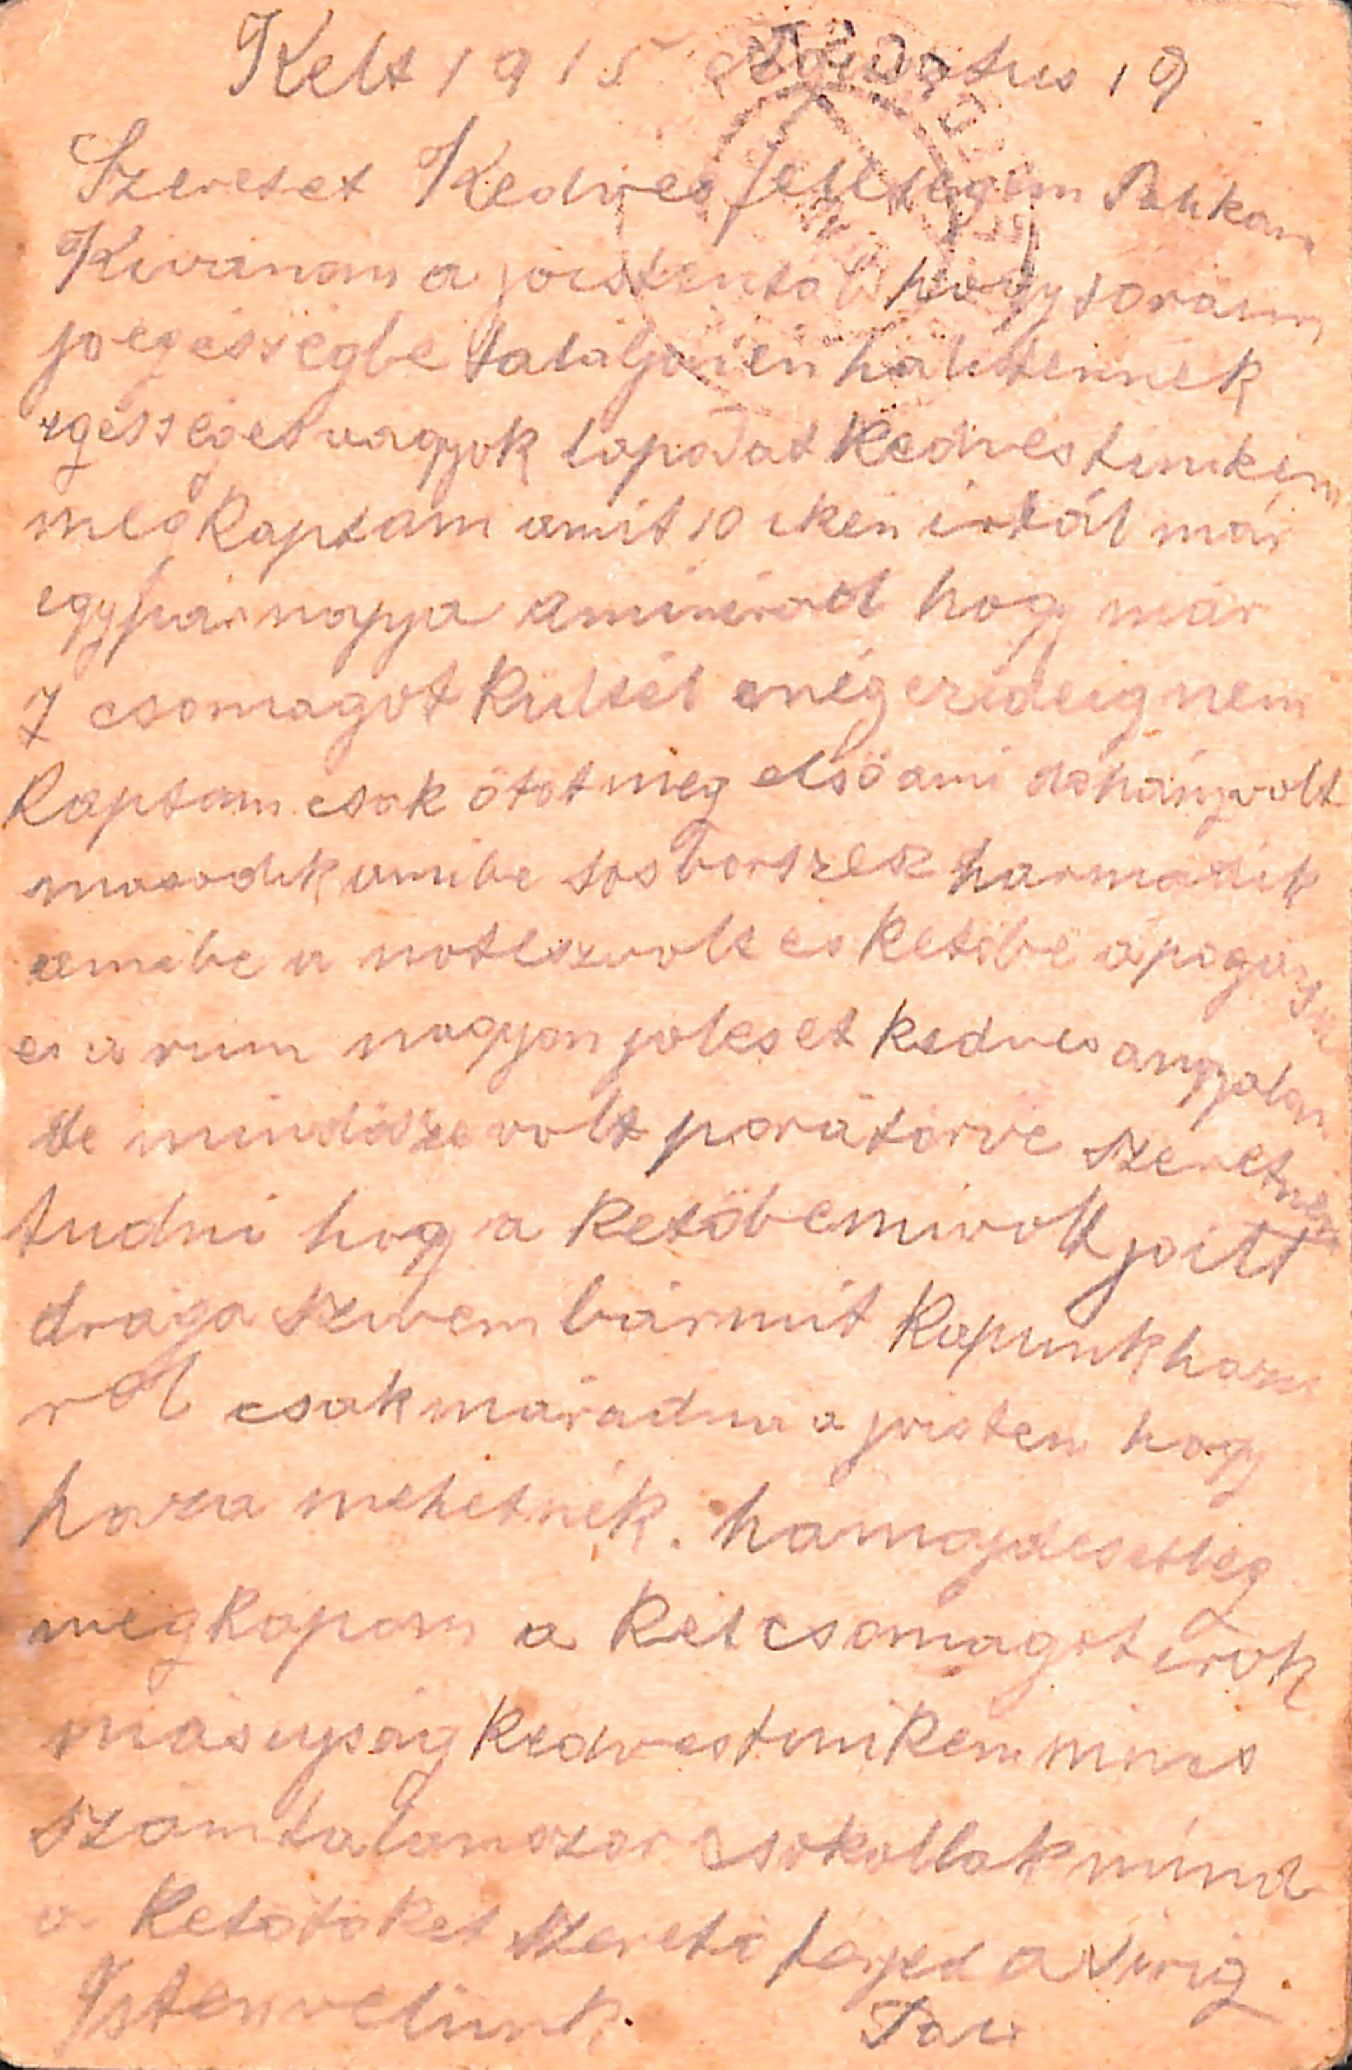 Kelt 1915 Augustus 19
Szeretet Kedves feleségem
Kivanom a joistentöl hogy soraim
joegésségbe talaljon én halistennek
egésséges vagyok lapodat Kedves tinikém
megkaptam amit 10 iken irtál már
egypár napja amin irod hogy már
7 csomagot Kultél még ezideig nem
Kaptam csak ötöt meg elsö ami dohányvolt
masodik amibe sosborszesz harmadik
amibe a noteszvolt es Ketöbe a pogácsa
es a rum nagyon joleset kedves angyalom
de mindösze volt porátörve szeretném
tudni hogy a Ketöbe mivolt joitt
draga szivem bármit Kapunk haza
rol csak máradna a joisten hogy
haza mehetnék. hamajdesetleg
megkapom a Ket csomagot irok
más ujság kedves tinikém nincs
számtalanszor csokollak mind
a Ketötöket szeretö ferjed a sirig.
Isten velünk.